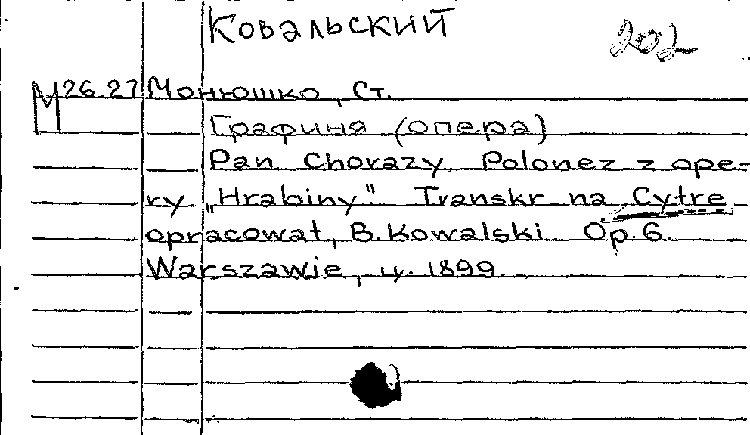 Ковальский
202
М 26.27 Монюшко, Ст.
Графиня (опера)
Pan Chorazy Polonez z ope-
ry „Hrabiny" Transkr na Cytre
opracował, B. Kowalski Op. 6.
Warszawie, ц. 1899.